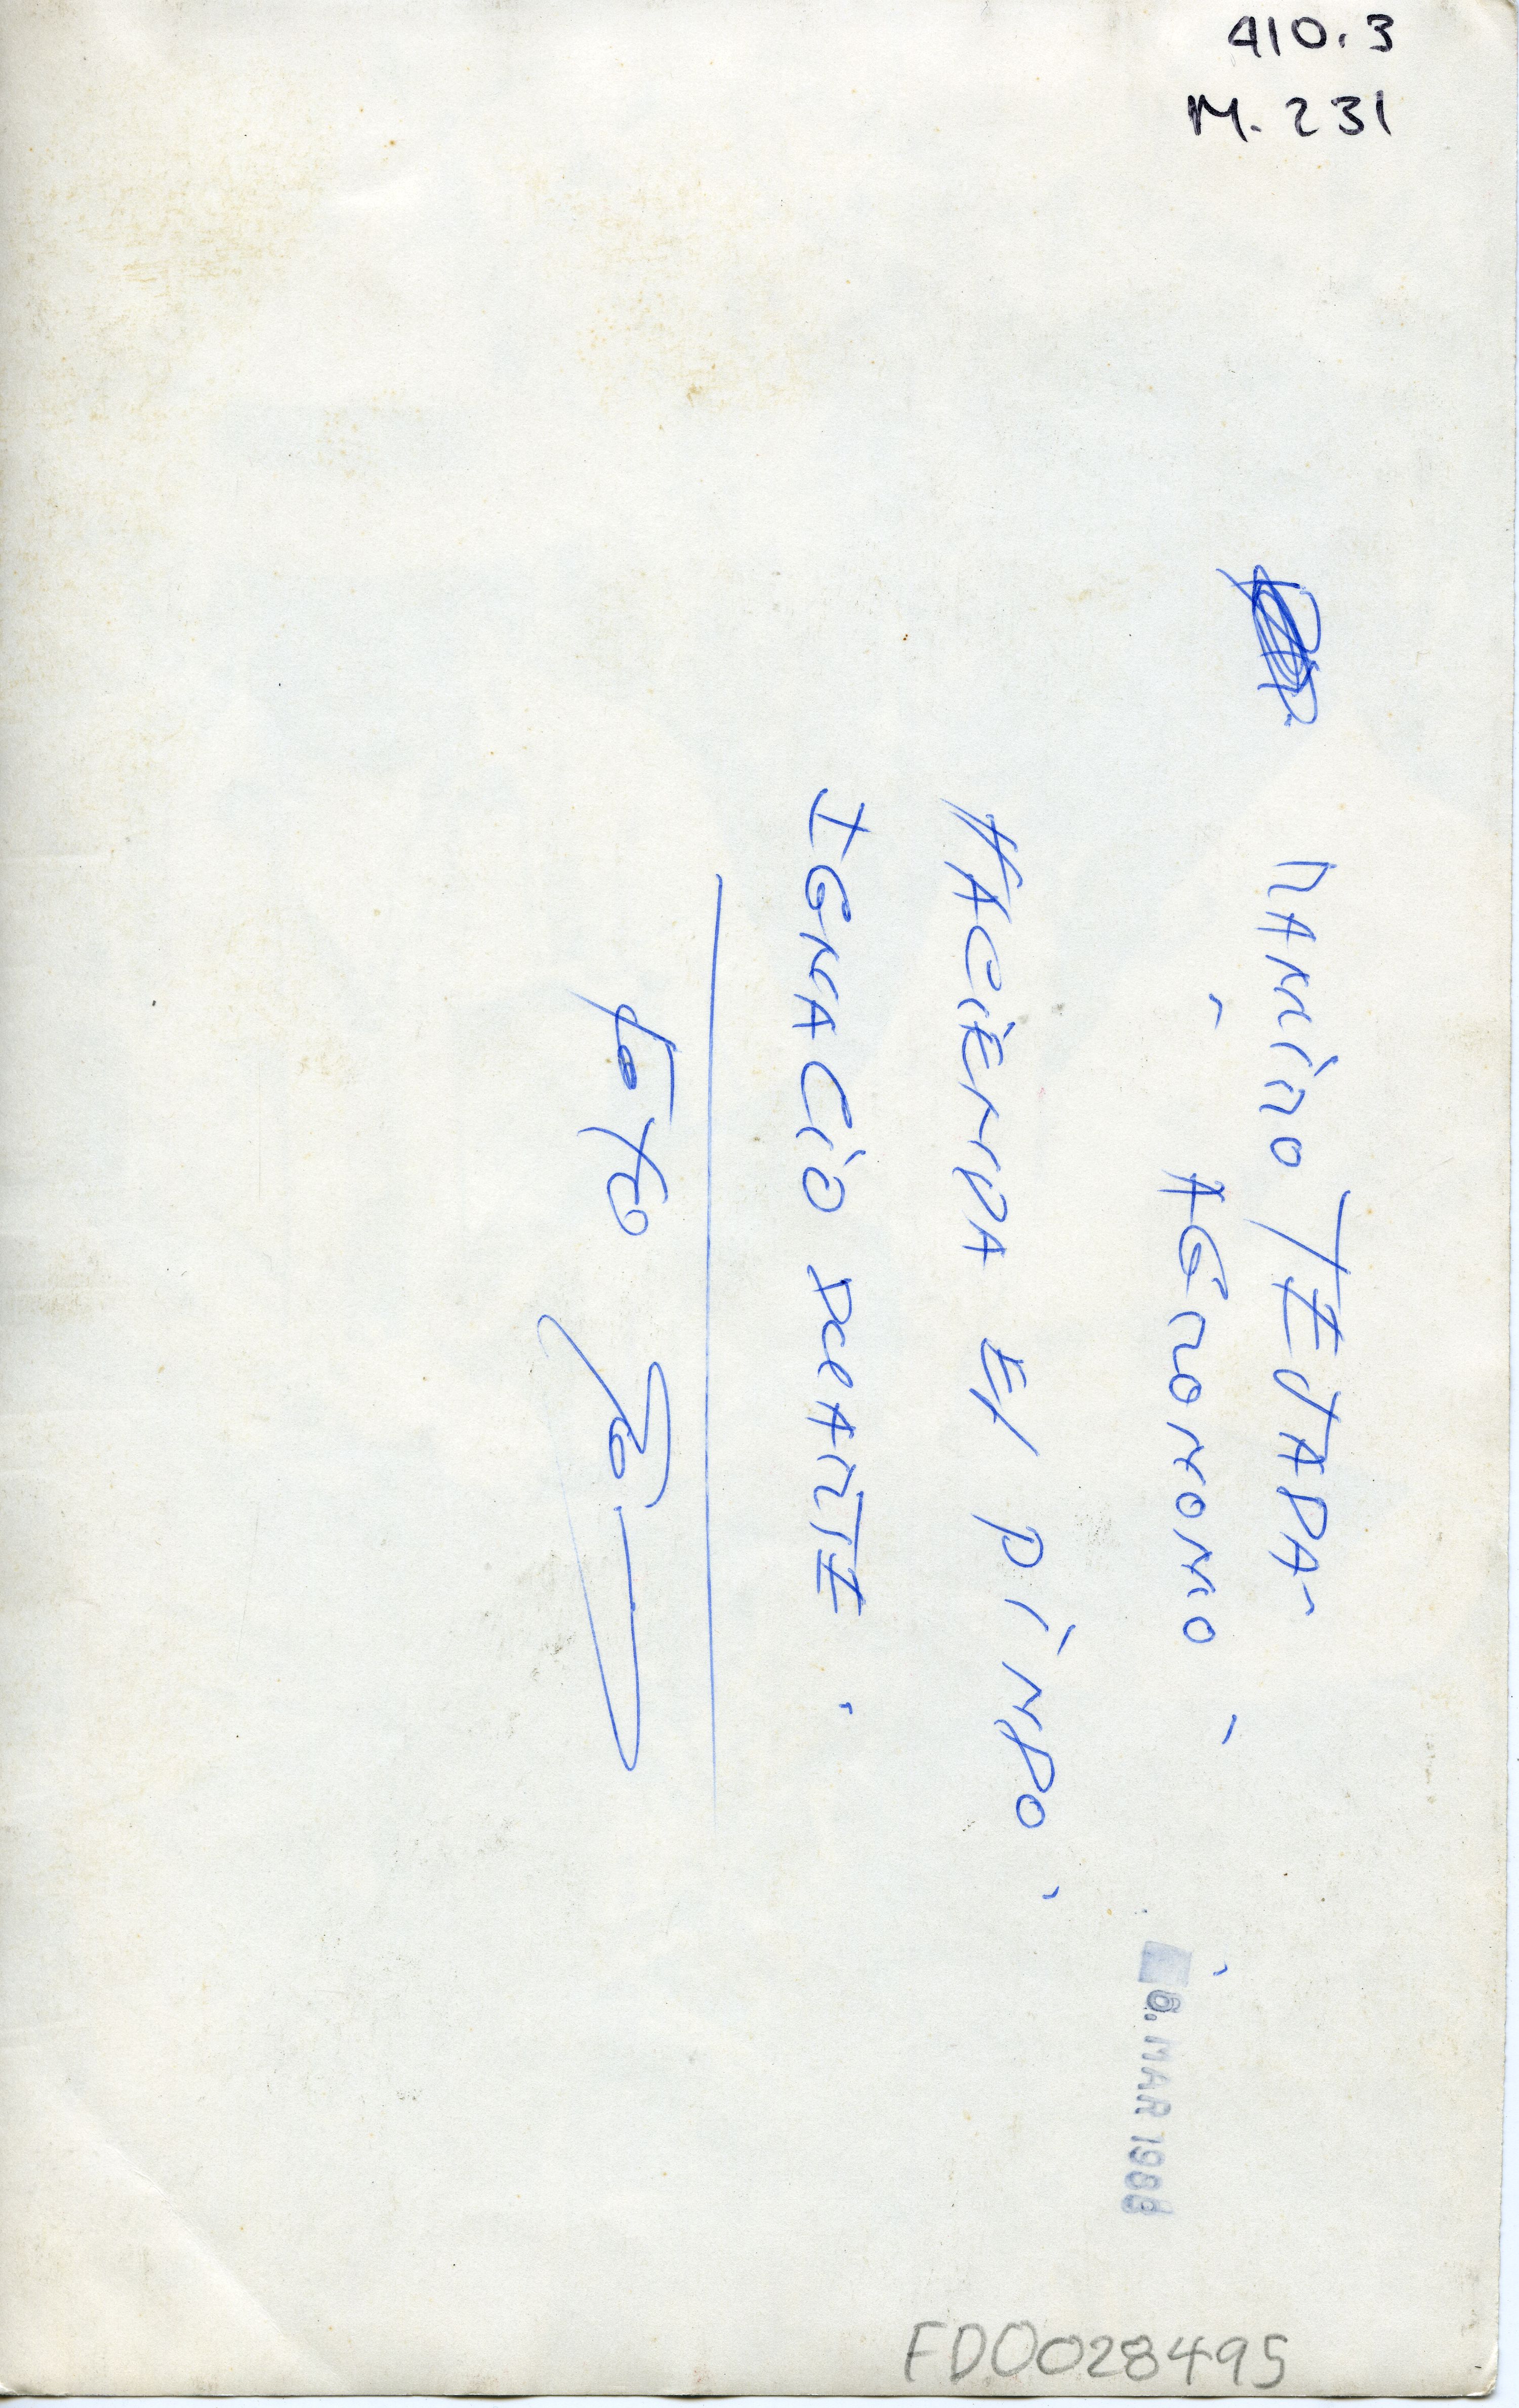 410.3
M. 231
RAMIRO TEJADA
AGRONOMO
HACIENDA El PINDO
IGNACIO DUARTE.
foto
6. MAR 1988
FD0028495